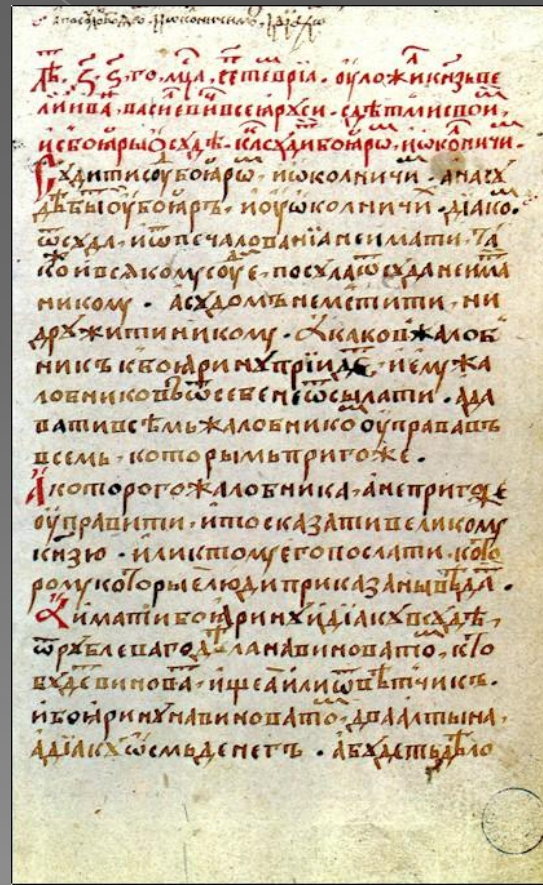 лѣⷮ ҂ꙅ҃ ꙅ҃ го, мцⷭа, сеⷫтевріа. оуложиⷧ кнзь ве
ликиⷤ ива҇, васиⷧевиⷱ всеꙗ рꙋси. с дѣтми свои,
и с боꙗры ѡ сꙋдѣ. каⷦ сꙋдиⷮ боꙗрѡⷨ, и ѡкоⷧничиⷨ.
Сꙋдити сꙋⷣ боꙗрѡⷨ, и ѡколничиⷨ. а на сꙋ
дѣ быⷮ оу боꙗръ, и оу ѡколничиⷯ діакоⷨ.
а посꙋлоⷡ ѿ сꙋда, и ѿ печалованіа не имати, таⷦ
ко и всякомꙋ сꙋⷣе, посꙋла ѿ сꙋда не имаⷮ
никомꙋ. а сꙋдомъ не мстити, ни
дрꙋжити никомꙋ. А каковъ жалоб
никъ к боꙗринꙋ прїидеⷮ, и емꙋ жа
лобниковъ ѿ себе не ѿсылати. а да
вати всѣмъ жалобникоⷨ оуправа въ
всемь, которымь пригоже.
А которого жалобника, а не пригоже
оуправити, и то сказати великомꙋ
кнзю. или к томꙋ его послати, кото
ромꙋ которые люди приказаны вѣдаⷮ.
А имати боꙗринꙋ и діакꙋ в сꙋдѣ,
ѿ рꙋблеваго дѣла на виноватоⷨ, кто
бꙋдеⷮ виноваⷮ, ищеа или ѿвѣтчикъ.
и боꙗринꙋ на виноватоⷨ, два алтына,
а діакꙋ ѡсмь денегъ. а бꙋдеть дѣло